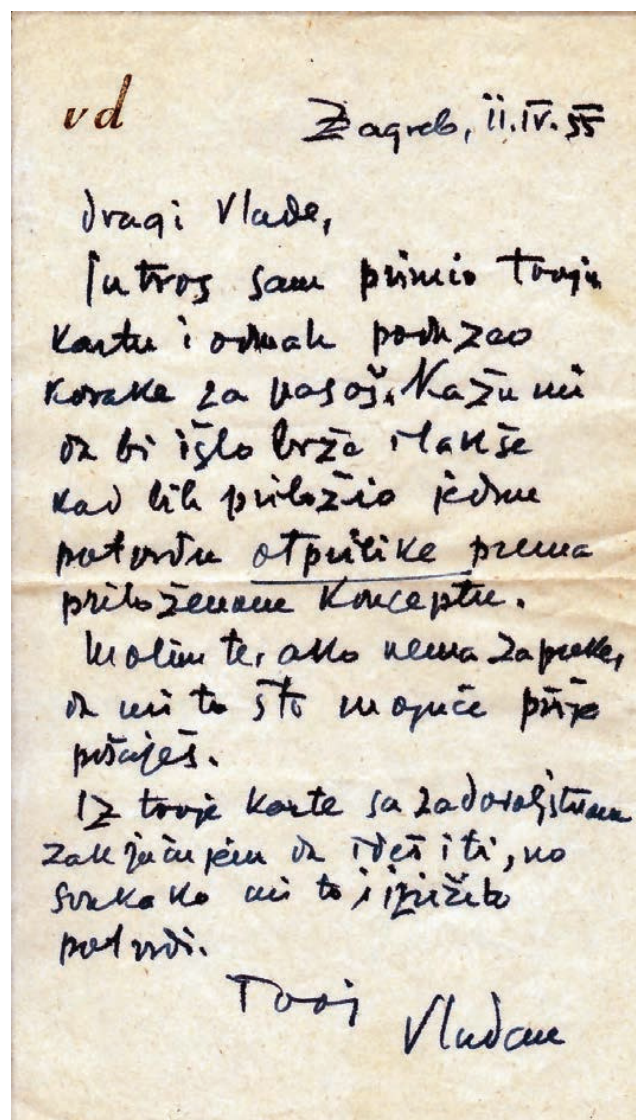 vd
Zagreb, 11.IV.55
Dragi Vlade,
Jutros sam primio tvoju
kartu i odmah poduzao
korake za pasoš. Kažu mi
da bi išlo brže i lakše
kad bih priložio jednu
potvrdu otprilike prema
priloženom konceptu.
Molim te, ako nema zapreke,
da mi to što moguće prije
pošalješ.
Iz tvoje karte sa zadovoljstvom
zaključujem da ideš i ti, no
svakako mi to i izričito
potvrdi.
Tvoj
Vladan